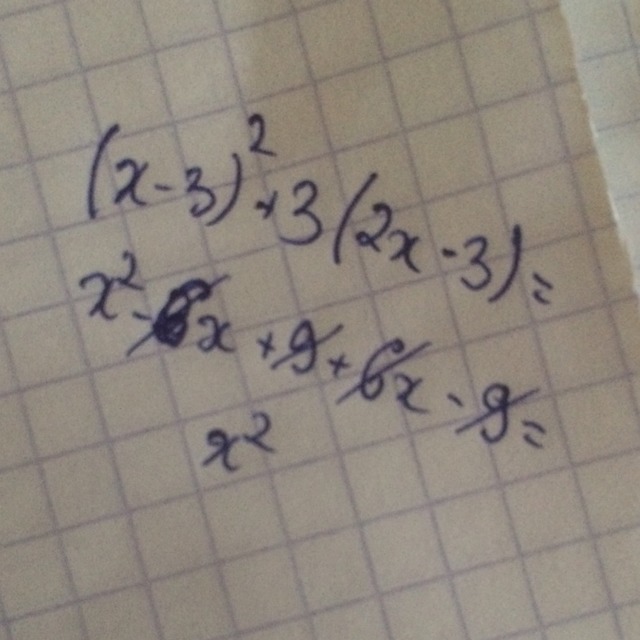 (x-3)² + 3(2x-3) =
x² - 6x + 9 + 6x - 9 =
x²